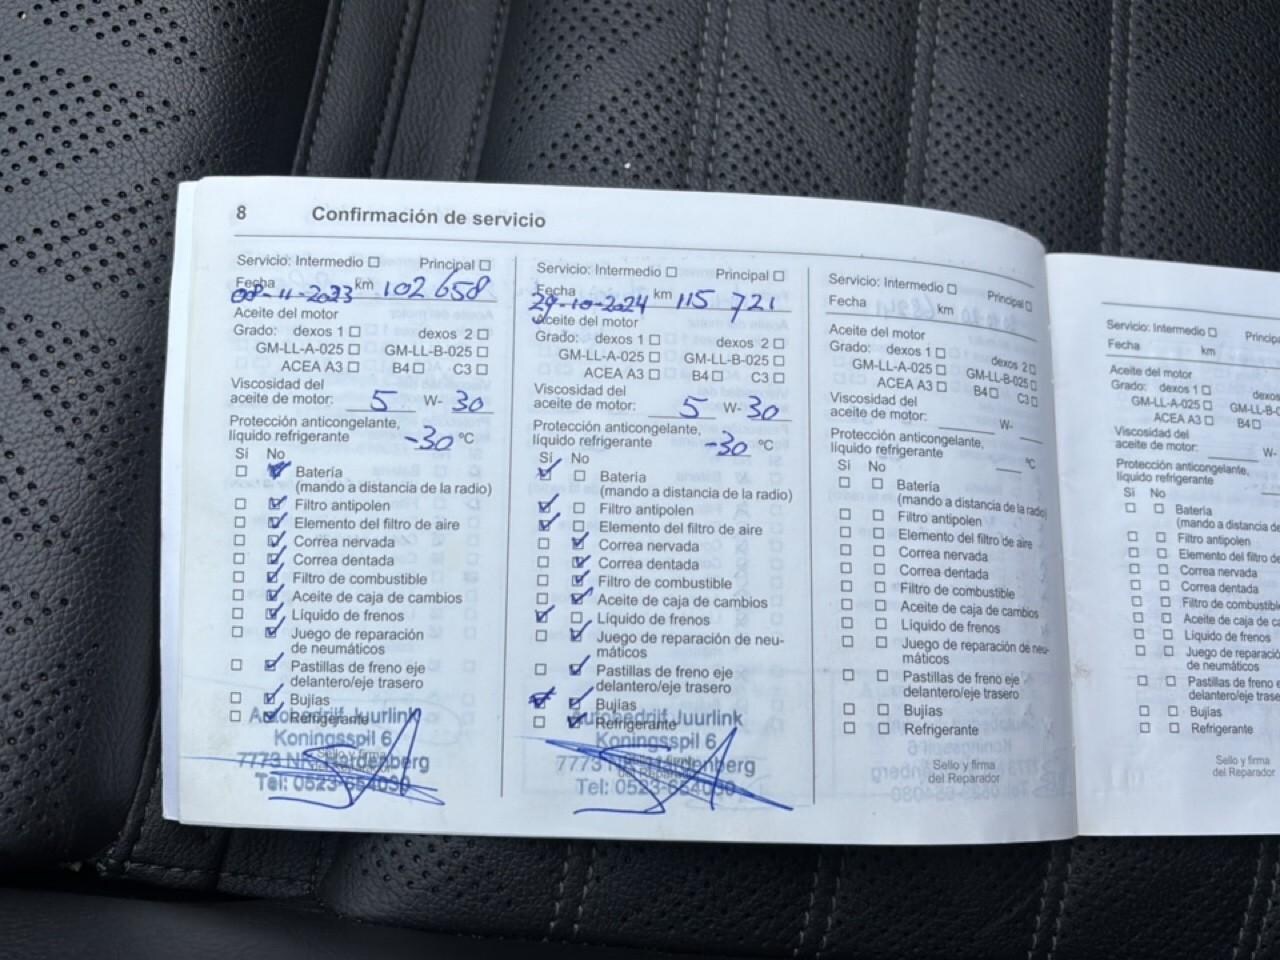 8 Confirmación de servicio
Servicio: Intermedio ☐ Principal ☐
Fecha 08-11-2023 km 102 658
Aceite del motor
Grado: dexos 1 ☐ dexos 2 ☐
GM-LL-A-025 ☐ GM-LL-B-025 ☐
ACEA A3 ☐ B4 ☐ C3 ☐
Viscosidad del
aceite de motor: 5 W- 30
Protección anticongelante,
líquido refrigerante -30 °C
Sí No
Batería
(mando a distancia de la radio)
Filtro antipolen
Elemento del filtro de aire
Correa nervada
Correa dentada
Filtro de combustible
Aceite de caja de cambios
Líquido de frenos
Juego de reparación
de neumáticos
Pastillas de freno eje
delantero/eje trasero
Bujías
Refrigerante
Autobedrijf Juurlink
Koningsspil 6
Sello y firma
7773 Hardenberg
Tel: 0523-684080
Servicio: Intermedio ☐ Principal ☐
Fecha 29-10-2024 km 115 721
Aceite del motor
Grado: dexos 1 ☐ dexos 2 ☐
GM-LL-A-025 ☐ GM-LL-B-025 ☐
ACEA A3 ☐ B4 ☐ C3 ☐
Viscosidad del
aceite de motor: 5 W- 30
Protección anticongelante,
líquido refrigerante -30 °C
Sí No
Batería
(mando a distancia de la radio)
Filtro antipolen
Elemento del filtro de aire
Correa nervada
Correa dentada
Filtro de combustible
Aceite de caja de cambios
Líquido de frenos
Juego de reparación de neu-
máticos
Pastillas de freno eje
delantero/eje trasero
Bujías
Refrigerante
Autobedrijf Juurlink
Koningsspil 6
Sello y firma
7773 Hardenberg
del Reparador
Tel: 0523-684080
Servicio: Intermedio ☐ Principal ☐
Fecha km
Aceite del motor
Grado: dexos 1 ☐ dexos 2 ☐
GM-LL-A-025 ☐ GM-LL-B-025 ☐
ACEA A3 ☐ B4 ☐ C3 ☐
Viscosidad del
aceite de motor: W-
Protección anticongelante,
líquido refrigerante °C
Sí No
Batería
(mando a distancia de la radio)
Filtro antipolen
Elemento del filtro de aire
Correa nervada
Correa dentada
Filtro de combustible
Aceite de caja de cambios
Líquido de frenos
Juego de reparación de neu-
máticos
Pastillas de freno eje
delantero/eje trasero
Bujías
Refrigerante
Sello y firma
del Reparador
Servicio: Intermedio ☐ Princip
Fecha km
Aceite del motor
Grado: dexos 1 ☐ dexos
GM-LL-A-025 ☐ GM-LL-B-
ACEA A3 ☐ B4 ☐
Viscosidad del
aceite de motor: W-
Protección anticongelante,
líquido refrigerante
Sí No
Batería
(mando a distancia d
Filtro antipolen
Elemento del filtro d
Correa nervada
Correa dentada
Filtro de combustible
Aceite de caja de ca
Líquido de frenos
Juego de reparació
de neumáticos
Pastillas de freno e
delantero/eje traser
Bujías
Refrigerante
Sello y firma
del Reparador